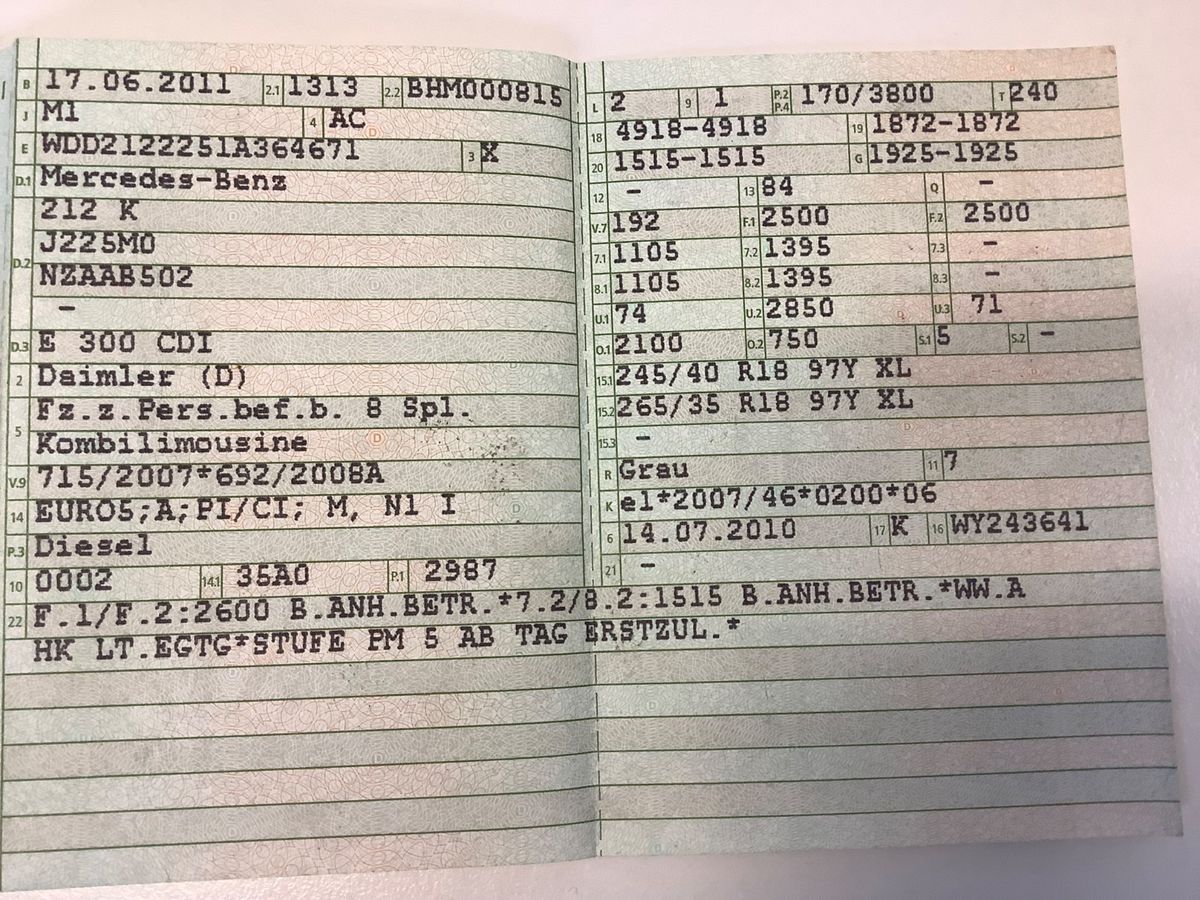 B 17.06.2011 2.1 1313 2.2 BHM000815
J M1 4 AC
E WDD2122251A364671 3 X
D.1 Mercedes-Benz
D.2 212 K
J225M0
NZAAB502
-
D.3 E 300 CDI
2 Daimler (D)
5 Fz.z.Pers.bef.b. 8 Spl.
Kombilimousine
V.9 715/2007*692/2008A
14 EURO5;A;PI/CI; M, N1 I
P.3 Diesel
10 0002 14.1 35A0 P.1 2987
L 2 9 1 P.2 P.4 170/3800 T 240
18 4918-4918 19 1872-1872
20 1515-1515 G 1925-1925
12 - 13 84 Q -
V.7 192 F.1 2500 F.2 2500
7.1 1105 7.2 1395 7.3 -
8.1 1105 8.2 1395 8.3 -
U.1 74 U.2 2850 U.3 71
O.1 2100 O.2 750 S.1 5 S.2 -
15.1 245/40 R18 97Y XL
15.2 265/35 R18 97Y XL
15.3 -
R Grau 11 7
K e1*2007/46*0200*06
6 14.07.2010 17 K 16 WY243641
21 -
22 F.1/F.2:2600 B.ANH.BETR.*7.2/8.2:1515 B.ANH.BETR.*WW.A
HK LT.EGTG*STUFE PM 5 AB TAG ERSTZUL.*